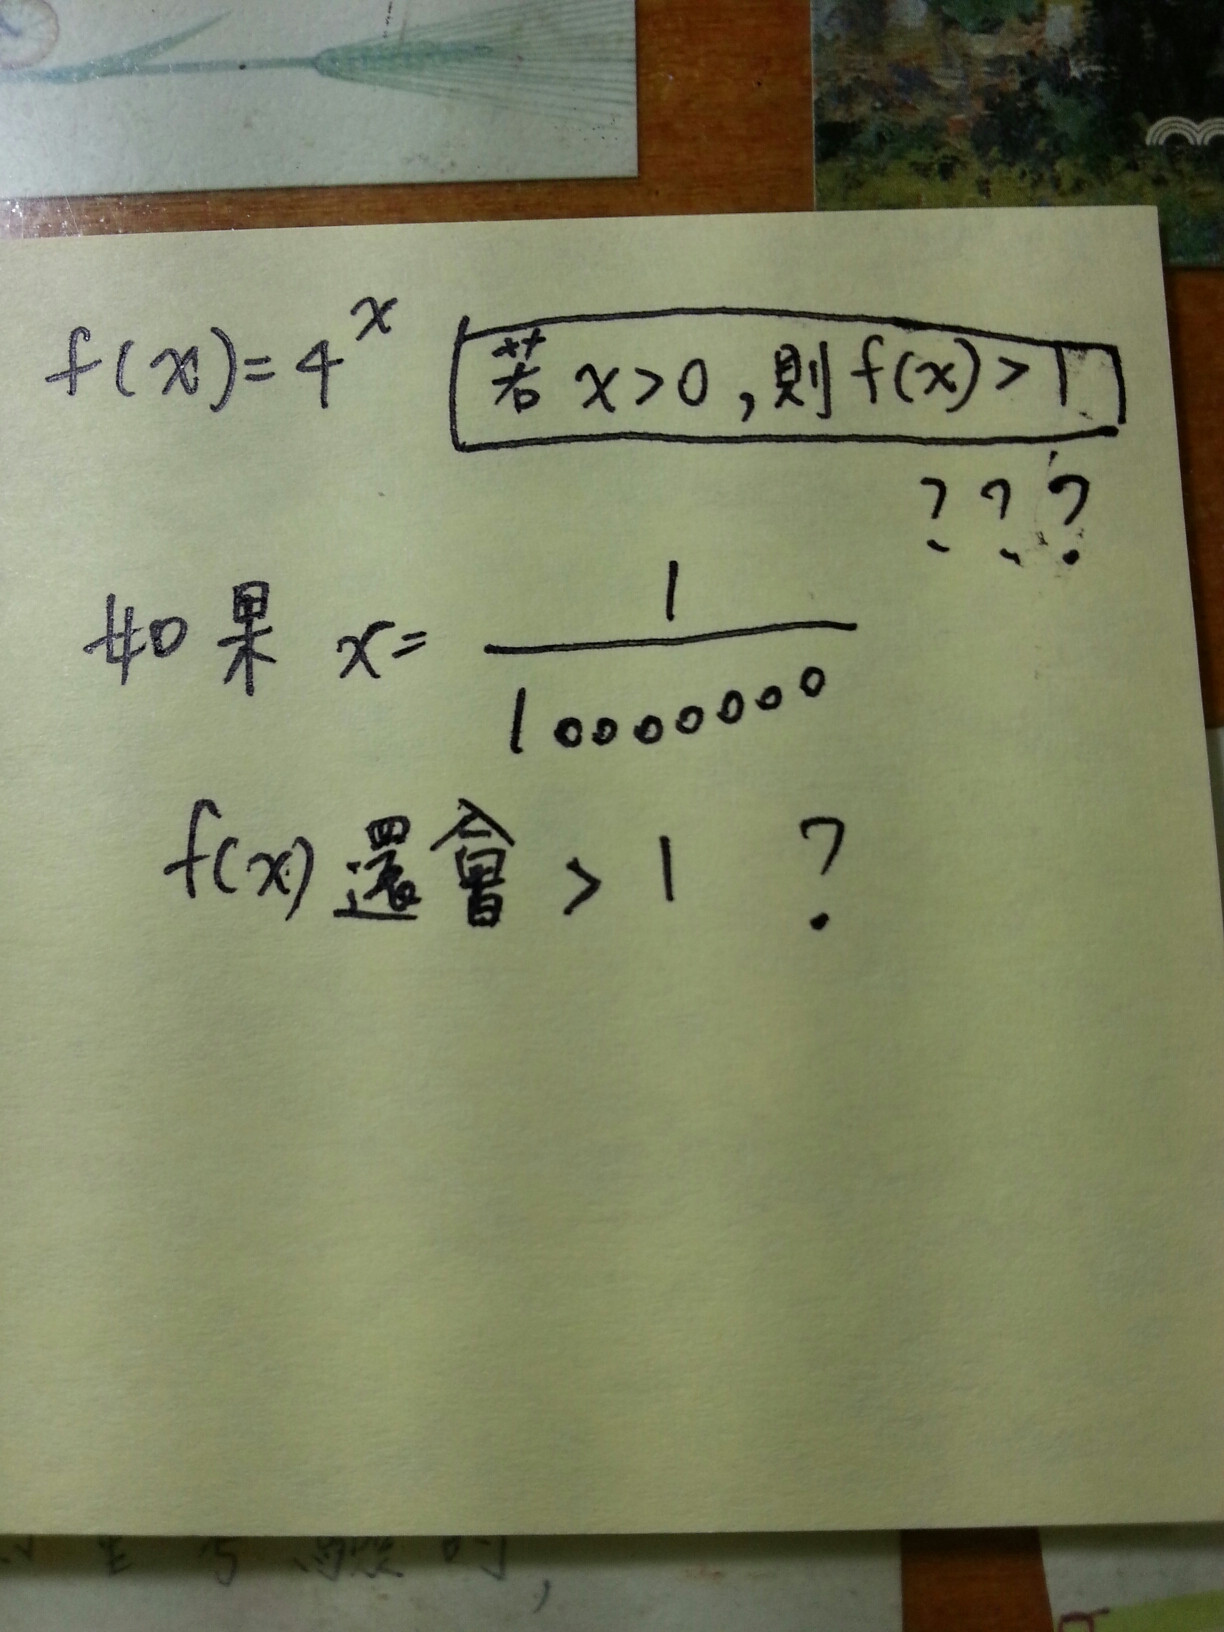 f(x)=4^x 若 x>0,則f(x)>1
???
如果 x= 1/10000000
f(x)還會 > 1 ?